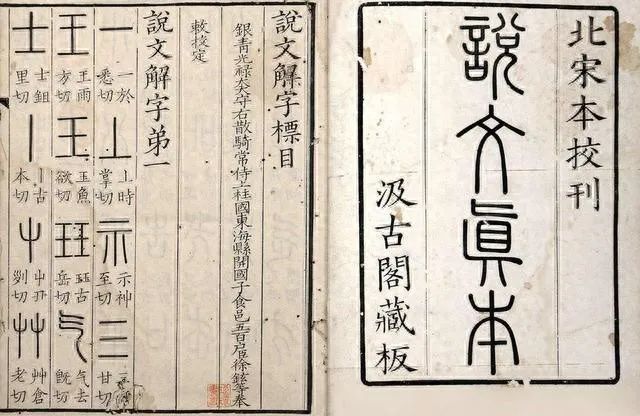 北宋本校刊
說文眞本
汲古閣藏板
說文解字標目
銀青光祿大夫守右散騎常侍上柱國東海縣開國子食邑五百戶臣徐鉉等奉
敕校定
說文解字弟一
一 一於悉切 丄 丄時掌切 示 示神至切 三 甘切
王 王雨方切 玉 玉魚欲切 玨 玨古岳切 气 气去旣切
士 士鉏里切 丨 丨古本切 屮 屮丑列切 艸 艸倉老切